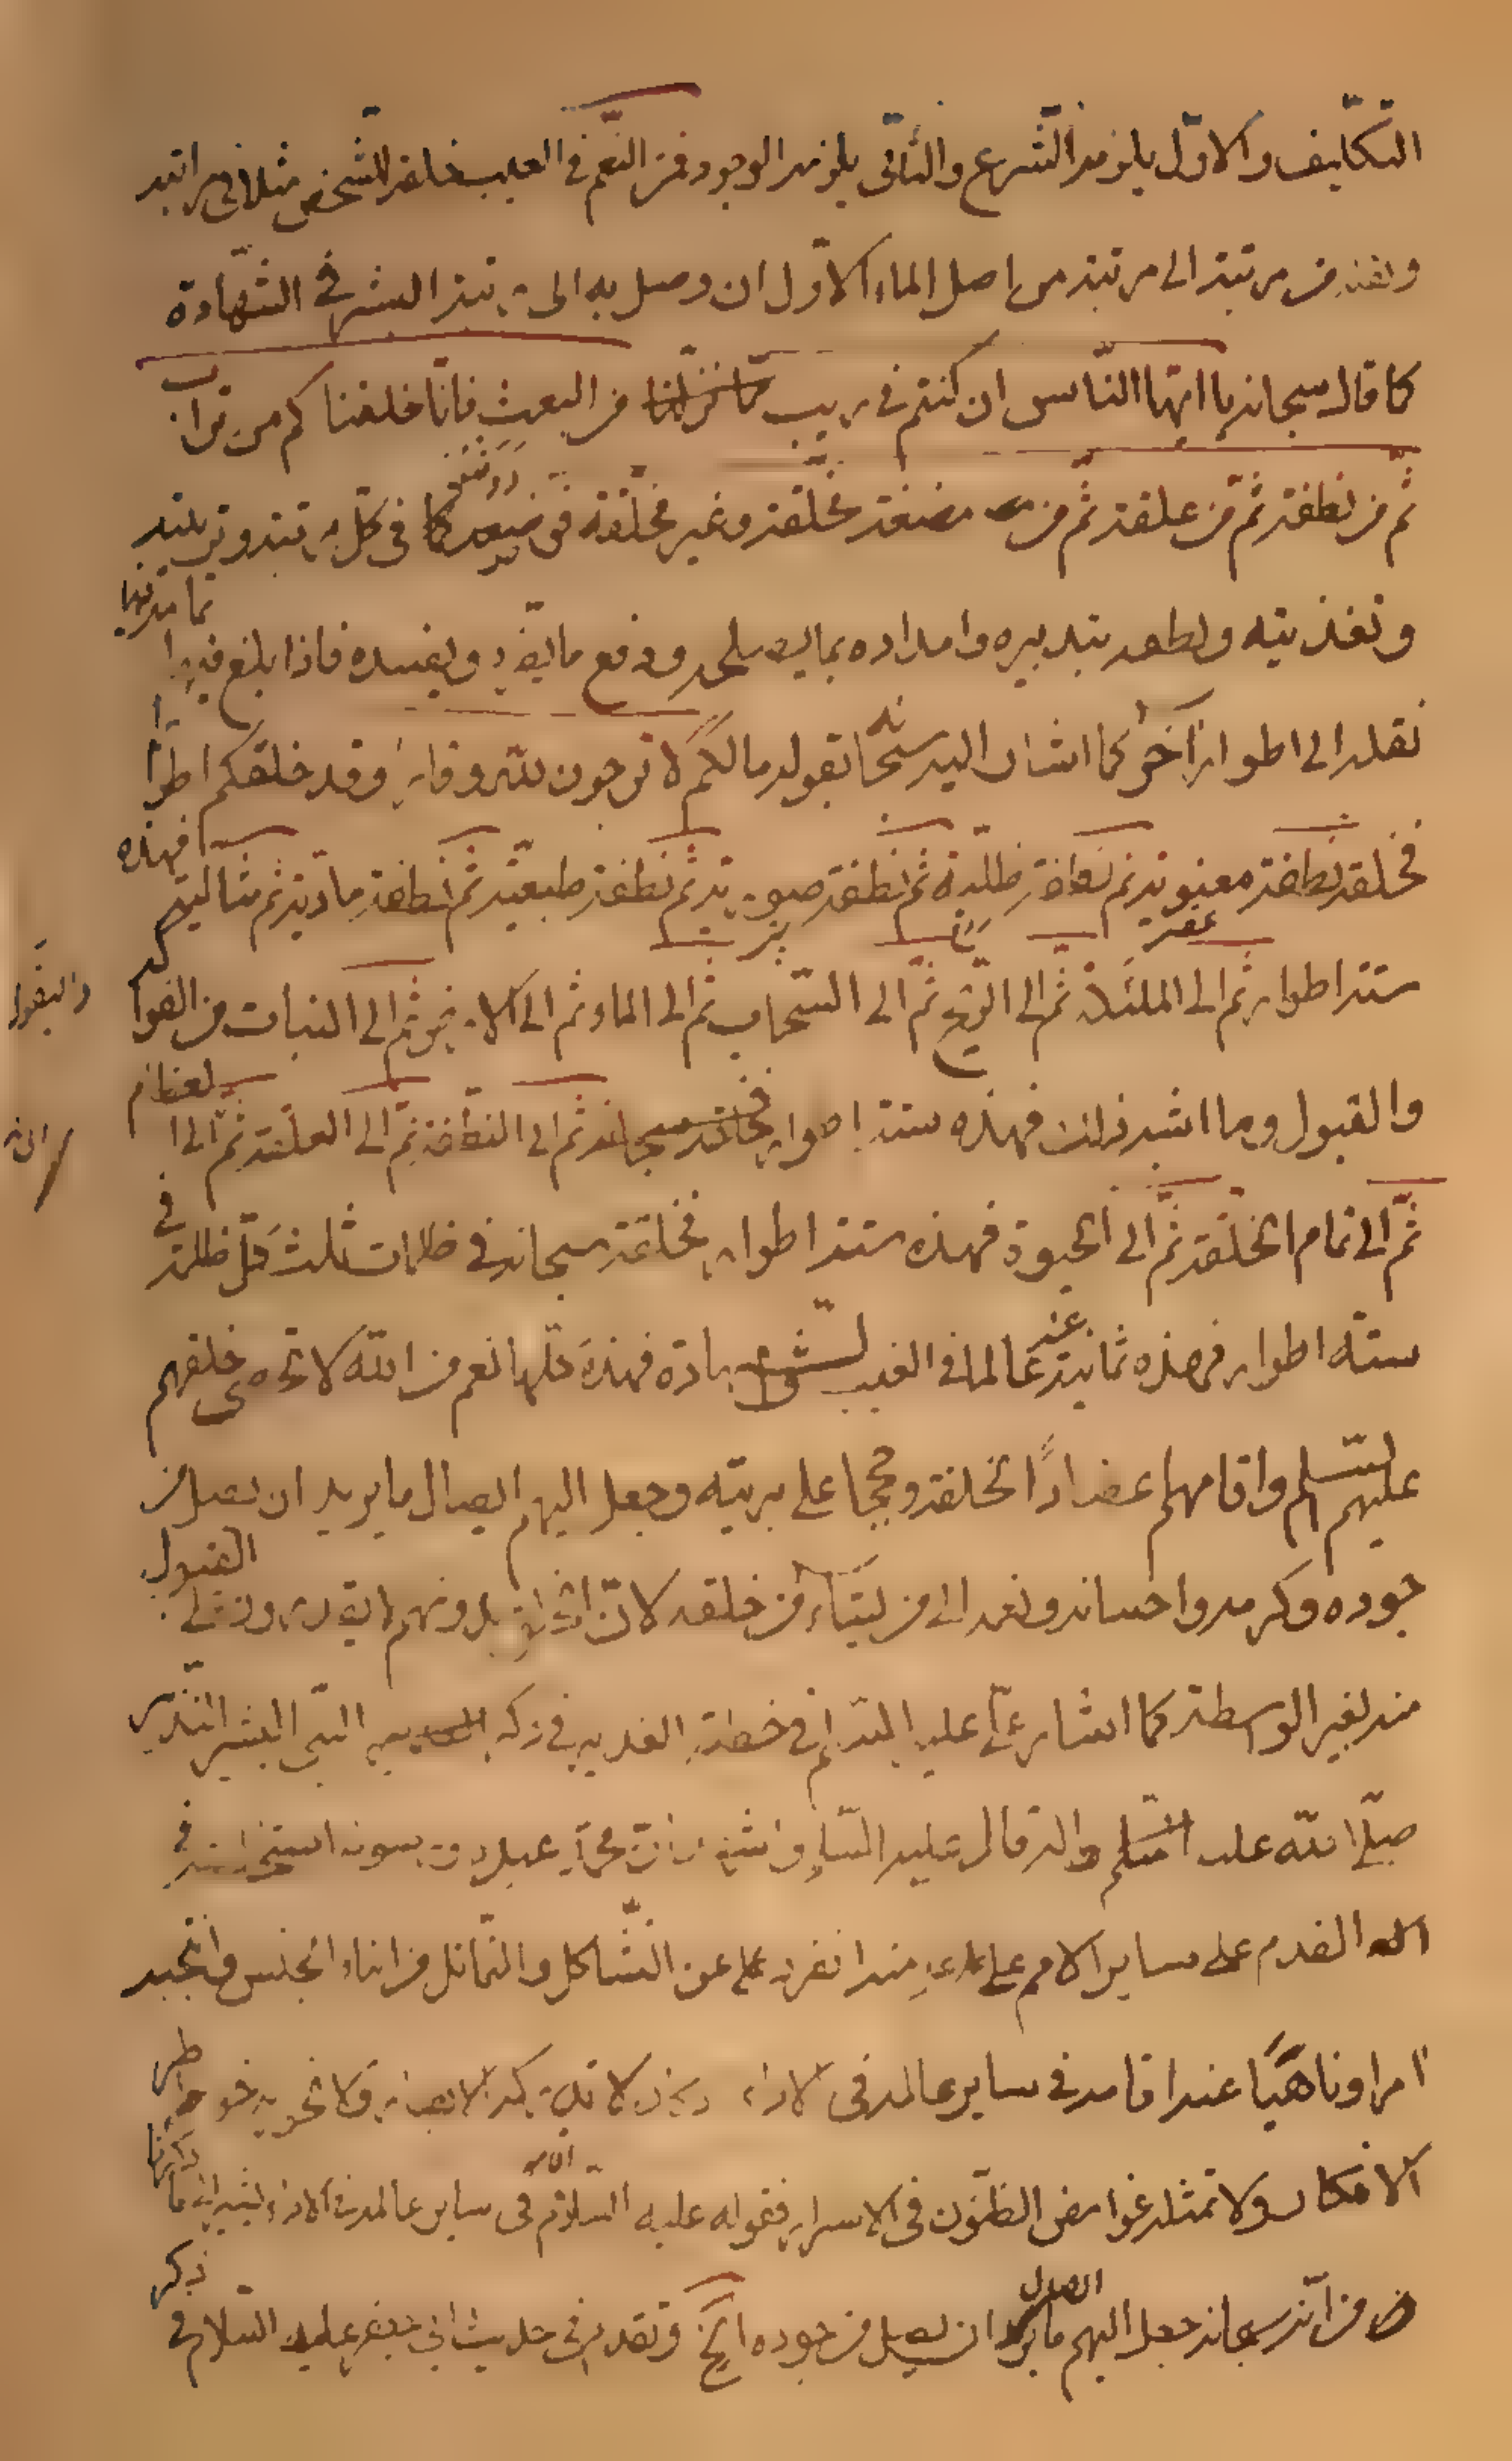 التكليف والاول يلزمه الشرع والثاني يلزمه الوجود فمن النعم في الغيب خلقه للشخص مثلا في مراتبه
من مرتبة الى مرتبة من اصل الماء الاول ان وصل به الى رتبة البشر في الشهادة
كما قال سبحانه يا ايها الناس ان كنتم في ريب مما نزلنا من البعث فانا خلقناكم من تراب
ثم من نطفة ثم من علقة ثم من مضغة مخلقة وغير مخلقة في كل رتبة وتربيته
وتغذيته ولطفه بتدبيره وامداده بما يصلحه ودفع ما يفسده فاذا بلغ فيها تمامه
نقله الى اطوار اخر كما اشار اليه سبحانه بقوله ما لكم لا ترجون لله وقارا وقد خلقكم اطوارا
فخلقه نطفة معنوية ثم نطفة ظلية ثم نطفة صورية ثم نطفة طبيعية ثم نطفة مادية ثم مثالية فهذه
ستة اطوار ثم الى الملئكة ثم الى الريح ثم الى السحاب ثم الى الماء ثم الى الارض ثم الى النبات من الفواكه
والبقول
والقبول وما اشبه ذلك فهذه ستة اطوار فخلقه سبحانه ثم الى النطفة ثم الى العلقة ثم الى العظام
ثم الى تمام الخلقة ثم الى الحيوة فهذه ستة اطوار فخلقه سبحانه في ظلمات ثلث في كل ظلمة
ستة اطوار فهذه ثمانية عشر عالما في الغيب فهذه كلها نعم من الله لا تحصى خلقهم
عليهم السلم واقامهم اعضادا لخلقه وحججا على بريته وجعل اليهم ايصال ما يريد ان يصل من
جوده وكرمه واحسانه ونعمه الى من يشاء من خلقه لان بدونهم لا يقدرون القبول
منه بغير الواسطة كما اشار علي عليه السلام في خطبة الغدير في ذكر النبي البشير النذير
صلى الله عليه واله قال عليه السلام واشهد ان محمدا عبده ورسوله استخلصه في
القدم على ساير الامم على علم منه انفرد عن التشاكل والتماثل من ابناء الجنس وانتجبه
امرا وناهيا عنه اقامه في ساير عالمه في الاداء اذ كان لا تدركه الابصار ولا تحويه خواطر
الافكار ولا تمثله غوامض الظنون في الاسرار فقوله عليه السلام اقامه في ساير عالمه في الاداء يشير الى ما ذكرنا
من انه سبحانه جعل اليهم ايصال ما يريد ان يصل من جوده الخ وتقدم في حديث ابي جعفر عليه السلام في ذكر